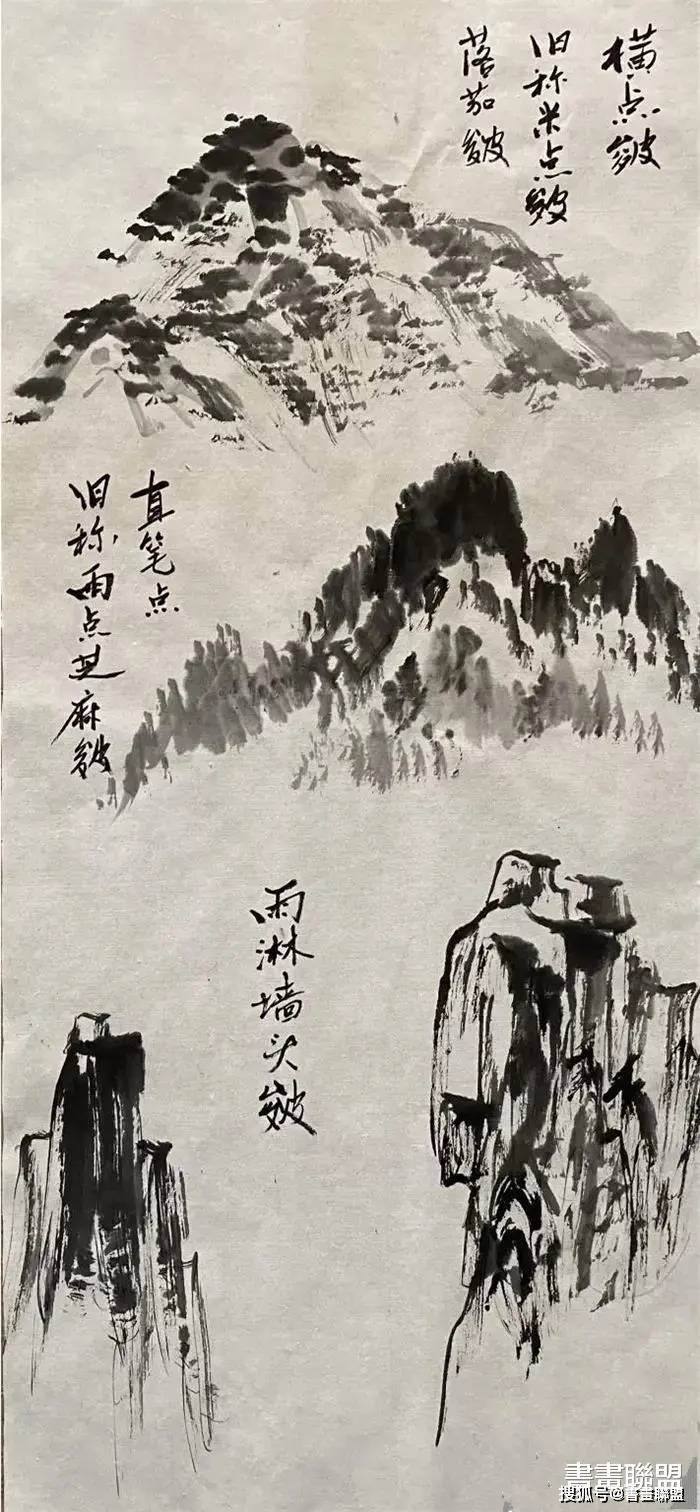 横点皴
旧称米点皴
落茄皴
直笔点
旧称雨点芝麻皴
雨淋墙头皴
書畫聯盟
搜狐号@書畫聯盟